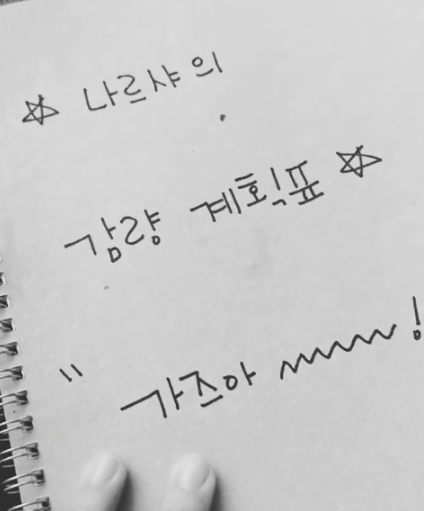 ☆ 나르샤의
감량 계획표 ☆
" 가즈아 ~~~~ !